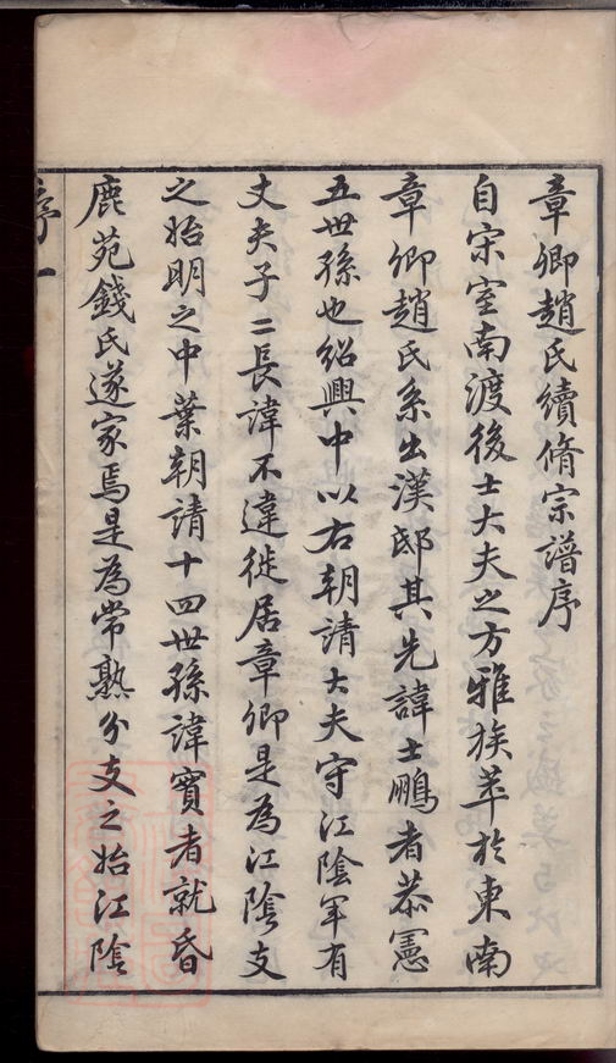 章卿趙氏續脩宗譜序
自宋室南渡後士大夫之方雅族萃於東南
章卿趙氏系出漢邸其先諱士鵬者恭憲
五世孫也紹興中以右朝請大夫守江陰軍有
丈夫子二長諱不違徙居章卿是為江陰支
之始明之中葉朝請十四世孫諱賓者就昏
鹿苑錢氏遂家焉是為常熟分支之始江陰
序一